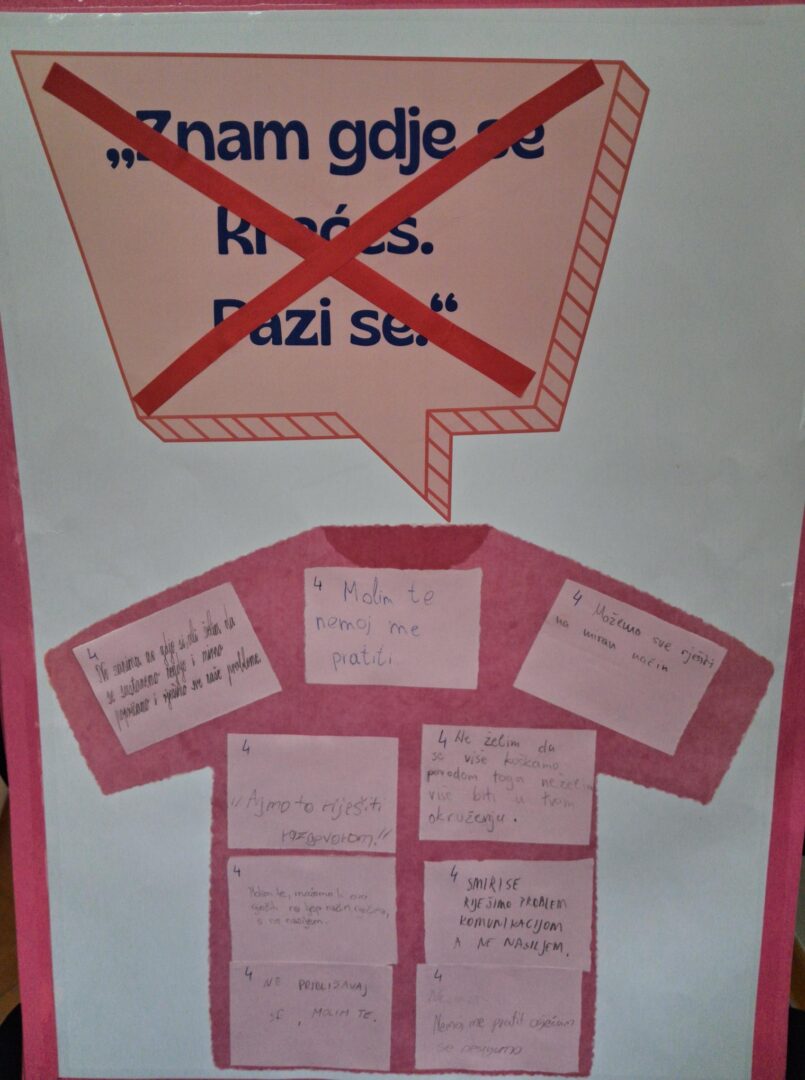 „Znam gdje se
krećeš.
Pazi se.“
4
Molim te
nemoj me
pratiti
4
se sastanemo negdje i mirno
popričamo i riješimo sve naše probleme.
4 Možemo sve riješiti
na miran način
4
"Ajmo to riješiti
razgovorom."
4 Ne želim da
se više
povodom toga ne želim
više biti u tvom
okruženju.
4
Molim te, možemo li ovo
riješiti na ljepši način
a ne nasiljem.
4 SMIRI SE
RIJEŠIMO PROBLEM
KOMUNIKACIJOM
A NE NASILJEM.
4 NE PRIBLIŽAVAJ
SE, MOLIM TE.
4
Nemoj me pratit osjećam
se nesigurno